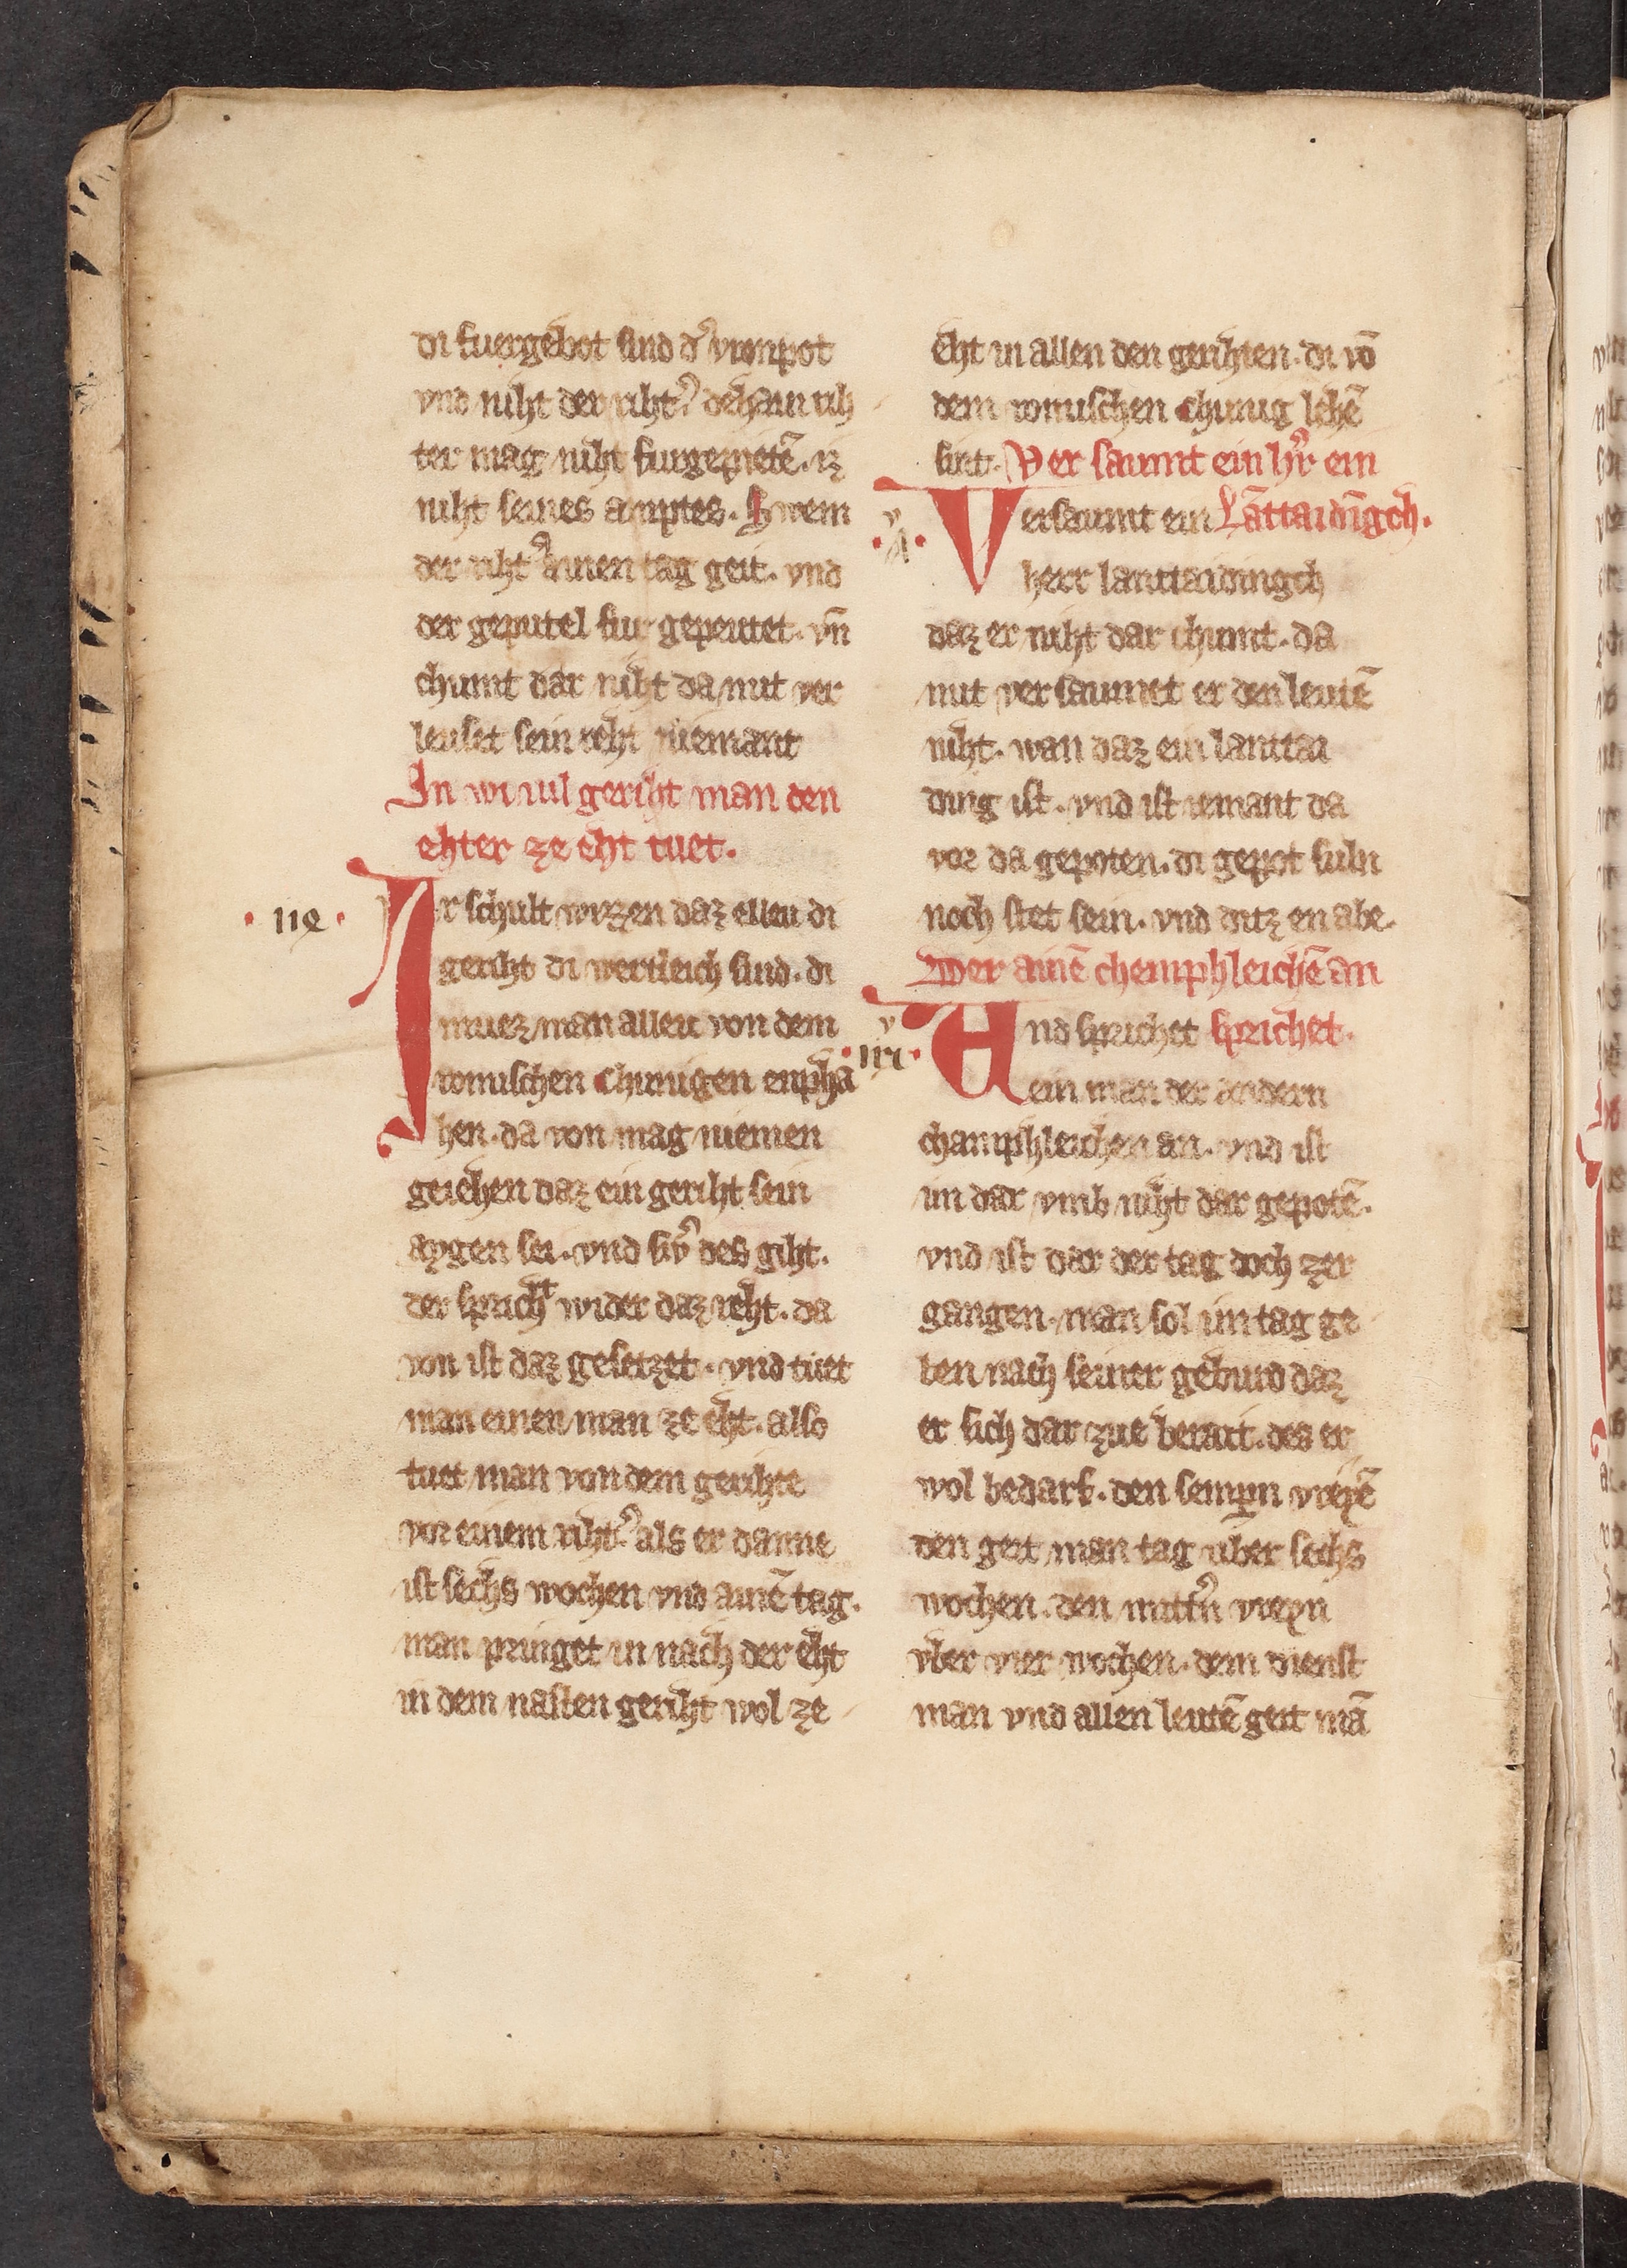 di fuergebot sind dˢ vronpot
vnd niht der rihtˢ dehain rih
ter mag niht furgepietē. iz
niht seines amptes. Swem
der rihtˢ ainen tag geit. vnd
der geputel fur gepeutet. vn̄
chumt dar niht da mit ver
leuset sein reht niemant
In wi uil geriht man den
ehter ze eht tuet.
· ·
Ir schult wizzen daz elleu di
geriht di wertleich sind. di
muez man alleu von dem
romischen chunigen enpha
hen. da von mag niemen
geiehen daz ein geriht sein
aygen sei. vnd swˢ des giht.
der sprichᵗ wider daz reht. da
von ist daz gesetzet. vnd tuet
man einen man ze eht. also
tuet man von dem gerihte
vor einem rihtˢ als er danne
ist sechs wochen vnd ainē tag.
man pringet in nach der eht
in dem nasten geriht wol ze
eht in allen den gerihten. di vō
dem romischen chunig lehē
sint. Ver saumt ein hˢr ein
Versaumt ein Lāttaidīgch.
herr lanttaidingch
daz er niht dar chumt. da
mit versaumet er den leutē
niht. wan daz ein lanttai
ding ist. vnd ist iemant da
vor da gepoten. di gepot suln
noch stet sein. vnd ditz en abe.
Der ainē chemphleichē an
Und sprichet sprichet.
ein man der andern
champhleichen an. vnd ist
im dar vmb niht dar gepotē.
vnd ist dar der tag doch zer
gangen. man sol im tag ge
ben nach seiner geburd daz
er sich dar zue berait. des er
wol bedarf. den sempn vreyē
den geit man tag uber sechs
wochen. den mittˢn vreyn
vber vier wochen. dem dienst
man vnd allen leutē geit mā